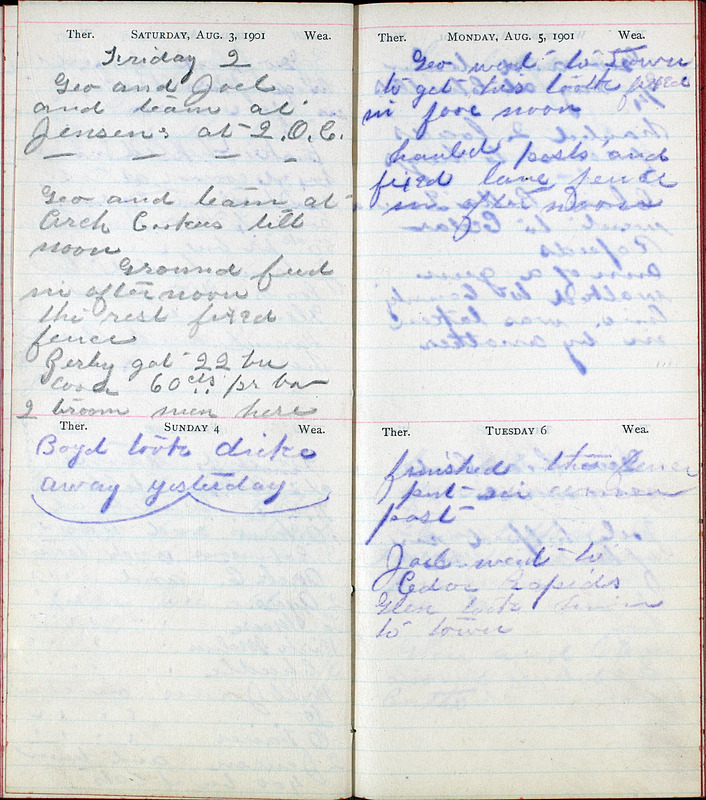 Ther. SATURDAY, AUG. 3, 1901 Wea.
Friday 2
Geo and Joel
and team at
Jensens at 2. O.C.
Geo and team at
Arch till
noon
Ground feed
in after noon
the rest fixed
fence
Zerby got 22 bu
corn 60 cts pr bu
2 broom men here
Ther. SUNDAY 4 Wea.
Boyd took
away yesterday
Ther. MONDAY, AUG. 5, 1901 Wea.
Geo went to Town
to get his tooth fixed
in fore noon
hauled posts and
fixed lane fence
in after noon
Ther. TUESDAY 6 Wea.
finished the fence
put in corner
post
Joel went to
Cedar Rapids
Glen took
to town